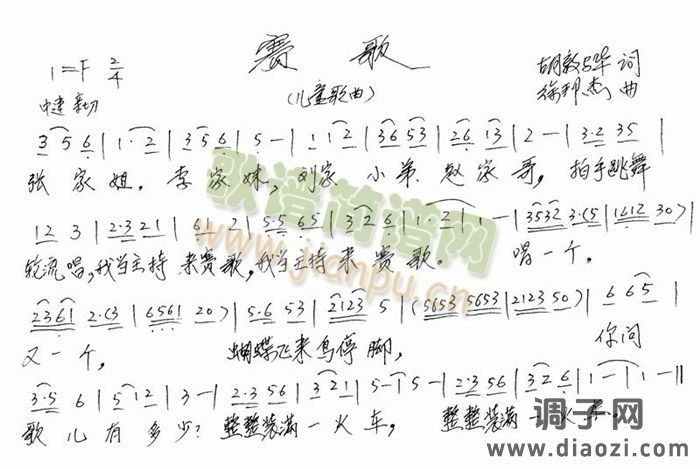 赛歌
(儿童歌曲)
1=F 2/4
中速 亲切
胡敦骅 词
徐邦杰 曲
3 5 6 | 1·2 | 3 5 6 | 5 - | 1 1 2 | 36 53 | 26 13 | 2 - | 3·2 35 |
张家姐，李家妹，刘家小弟赵家哥，拍手跳舞
12 3 | 2·3 21 | 6 2 | 5·5 65 | 3 2 6 | 1·2 | 1 - | 3532 3·(5 | 1612 30) |
轮流唱，我当主持来赛歌，我当主持来赛歌。唱一个，
2361 2·(3 | 6561 20) | 5·6 53 | 2123 5 | (5653 5653 | 2123 50) | 6 65 |
又一个，蝴蝶飞来鸟停脚，你问
3·5 6 | 5 12 | 3 - | 2·3 56 | 3 21 | 5 - | 5 - | 2·3 56 | 3 2 6 | 1 - | 1 - ||
歌儿有多少？整整装满一火车，整整装满一火车。
歌谱简谱网
www.jianpu.cn
调子网
www.diaozi.com